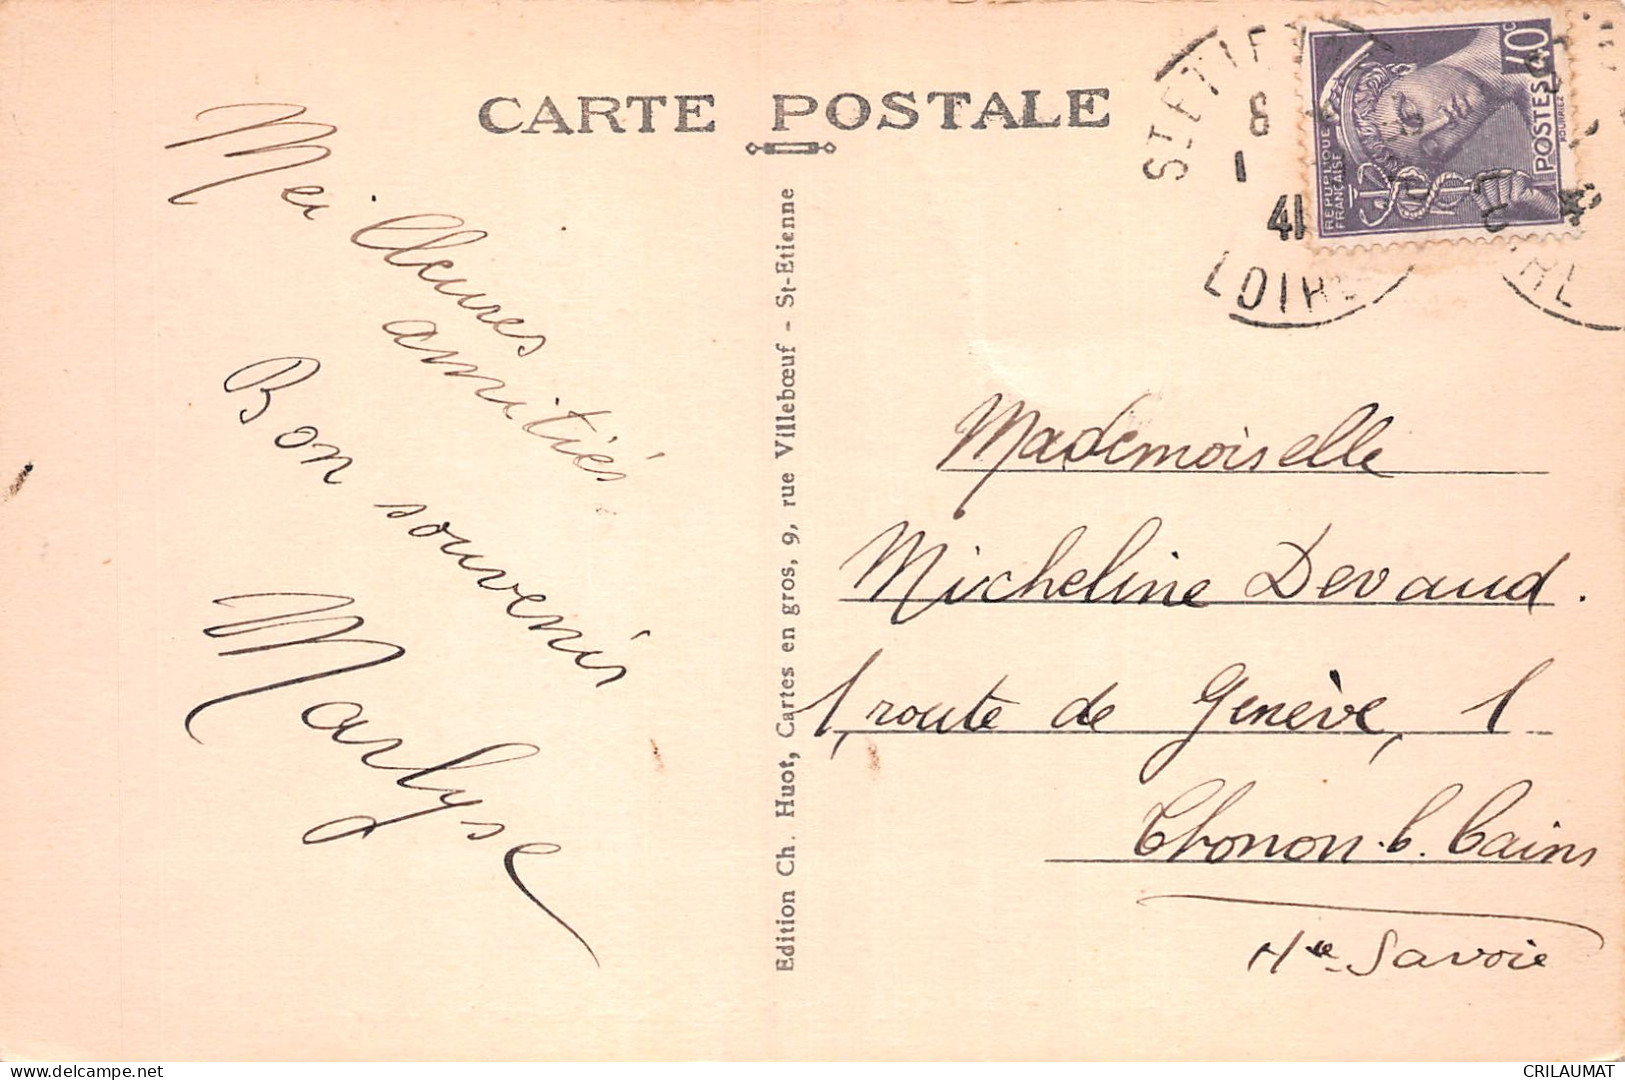 CARTE POSTALE
Meilleures
amitiés.
Bon souvenir
Marlyse
Edition Ch. Huot, Cartes en gros, 9, rue Villebœuf - St-Etienne
ST ETIENNE
8
1
41
LOIRE
40c
REPUBLIQUE
FRANÇAISE
POSTES
Mademoiselle
Micheline Devaud.
1, route de Genève, 1
Thonon-l. bains
Hte Savoie
delcampe.net
CRILAUMAT